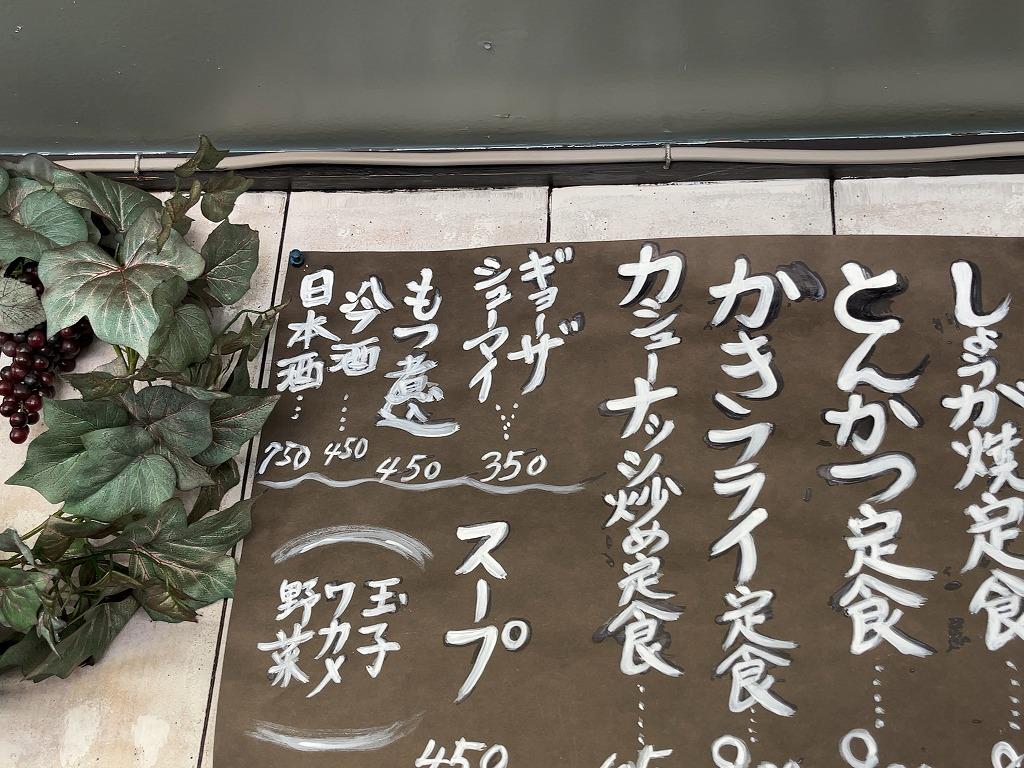 しょうが焼定食
とんかつ定食
かきフライ定食
カシューナッツ炒め定食
ギョーザ
シューマイ
350
もつ煮
450
冷酒
450
日本酒
750
スープ
玉子
ワカメ
野菜
450